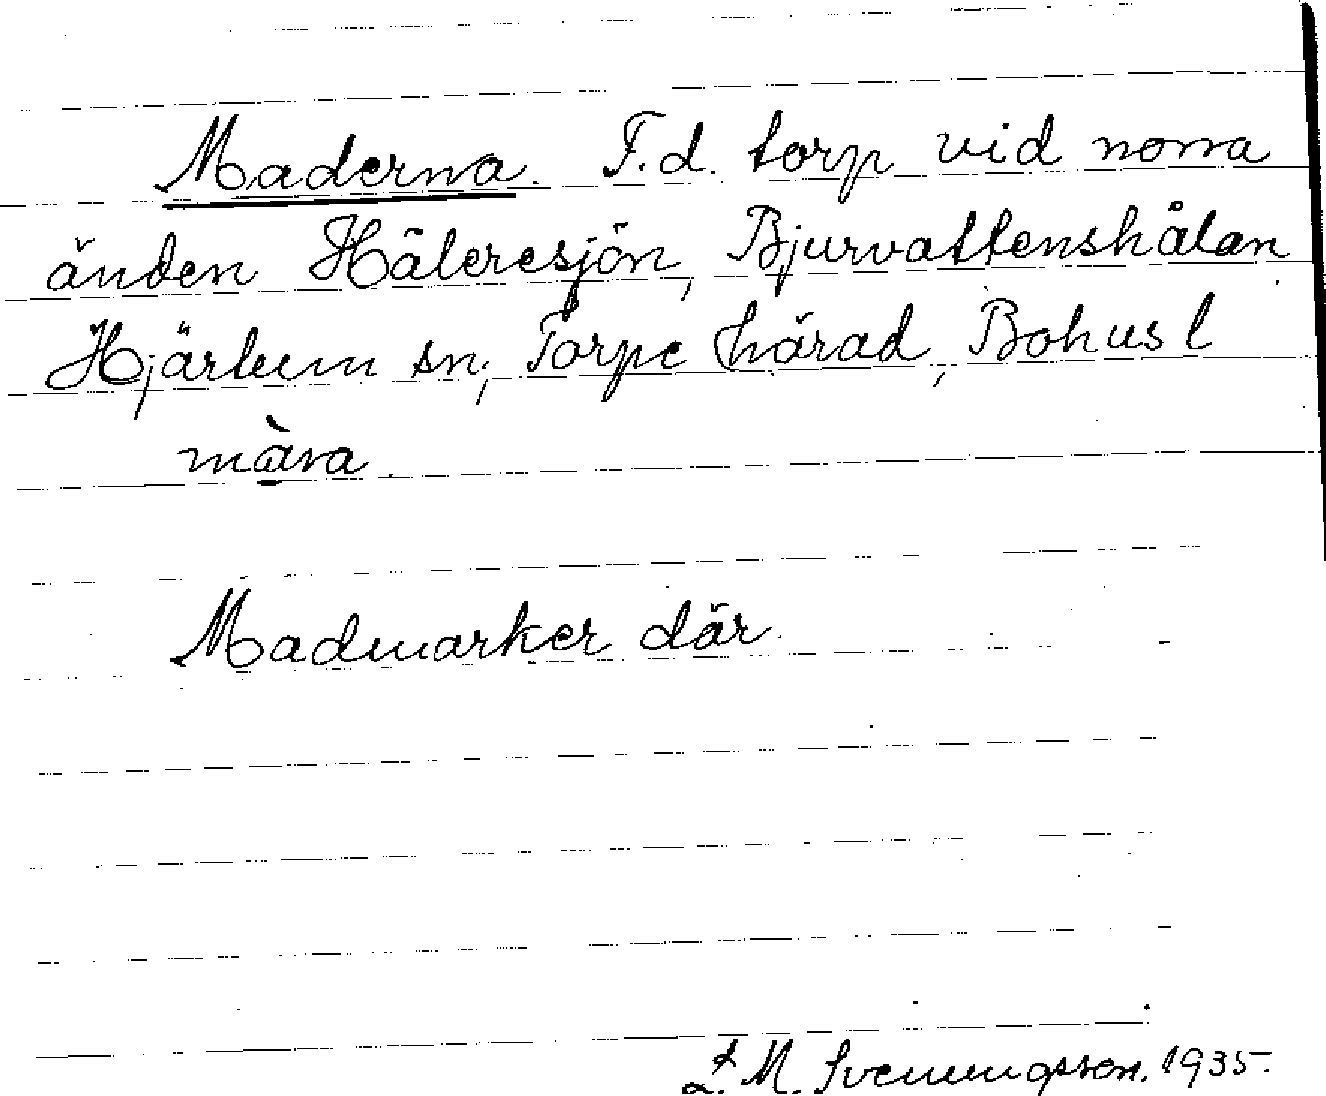 Maderna. F.d. torp vid norra
änden Häleresjön, Bjurvattenshålan,
Hjärtum sn, Torpe härad, Bohusl
màra.
Madmarker där.
L. M. Svenungsson. 1935.